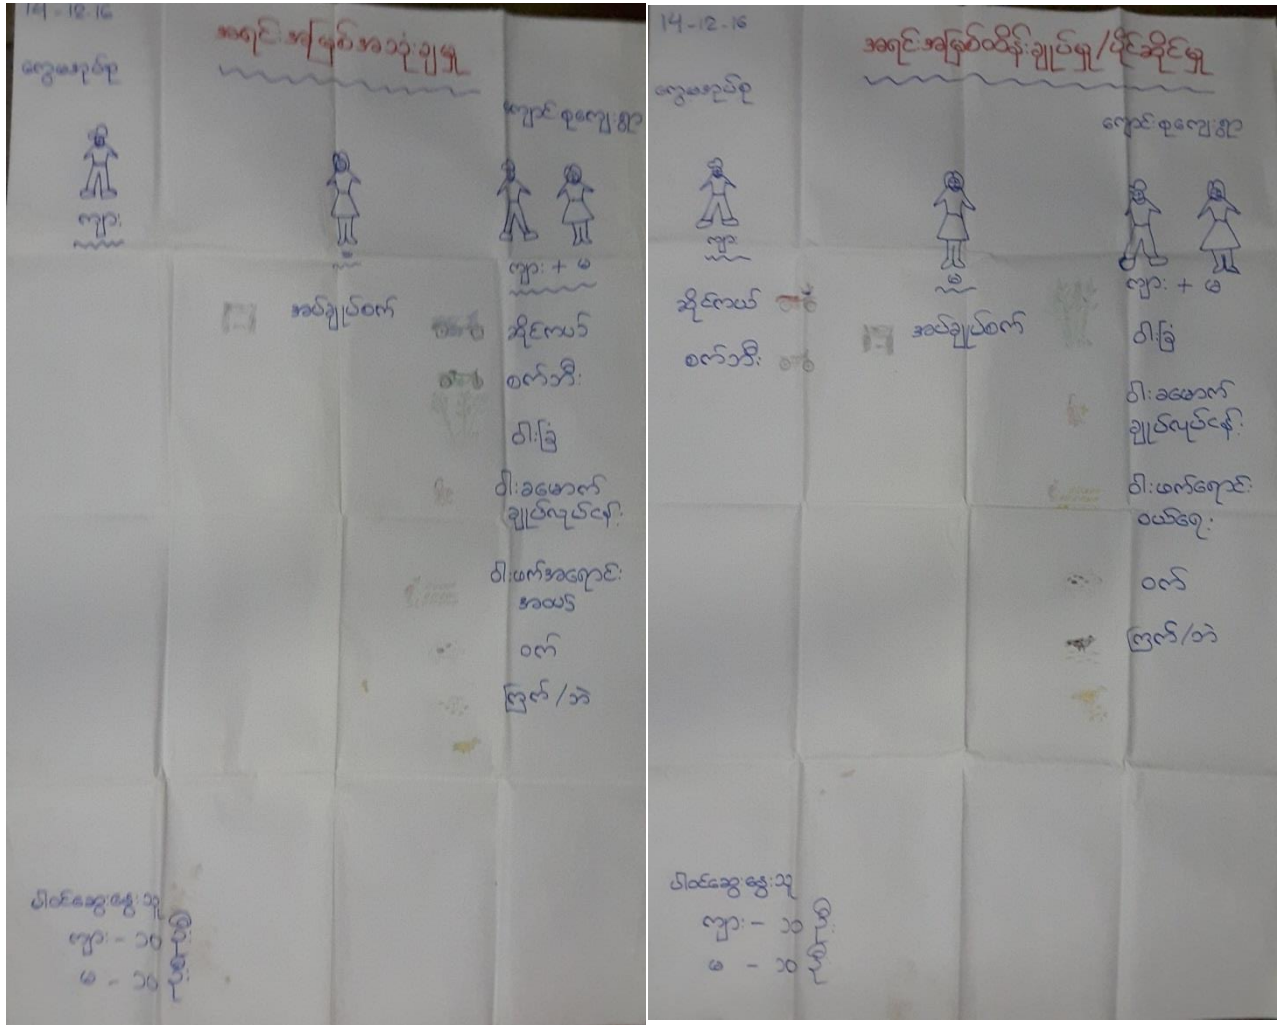 14-12-16
အရင်းအမြစ်အသုံးချမှု
ကျောင်းစုကျေးရွာ
ကျား
မ
ကျား + မ
အပ်ချုပ်စက်
ဆိုင်ကယ်
စက်ဘီး
ဝါးခြံ
ဝါးခမောက်
ချုပ်လုပ်ငန်း
ဝါးဖက်အရောင်း
အဝယ်
ဝက်
ကြက်/ဘဲ
ပါဝင်ဆွေးနွေးသူ
ကျား - ၁၀ ဦး
မ - ၁၀ ဦး
14-12-16
အရင်းအမြစ်ထိန်းချုပ်မှု/ပိုင်ဆိုင်မှု
ကျောင်းစုကျေးရွာ
ကျား
မ
ကျား + မ
ဆိုင်ကယ်
စက်ဘီး
အပ်ချုပ်စက်
ဝါးခြံ
ဝါးခမောက်
ချုပ်လုပ်ငန်း
ဝါးဖက်ရောင်း
ဝယ်ရေး
ဝက်
ကြက်/ဘဲ
ပါဝင်ဆွေးနွေးသူ
ကျား - ၁၀ ဦး
မ - ၁၀ ဦး